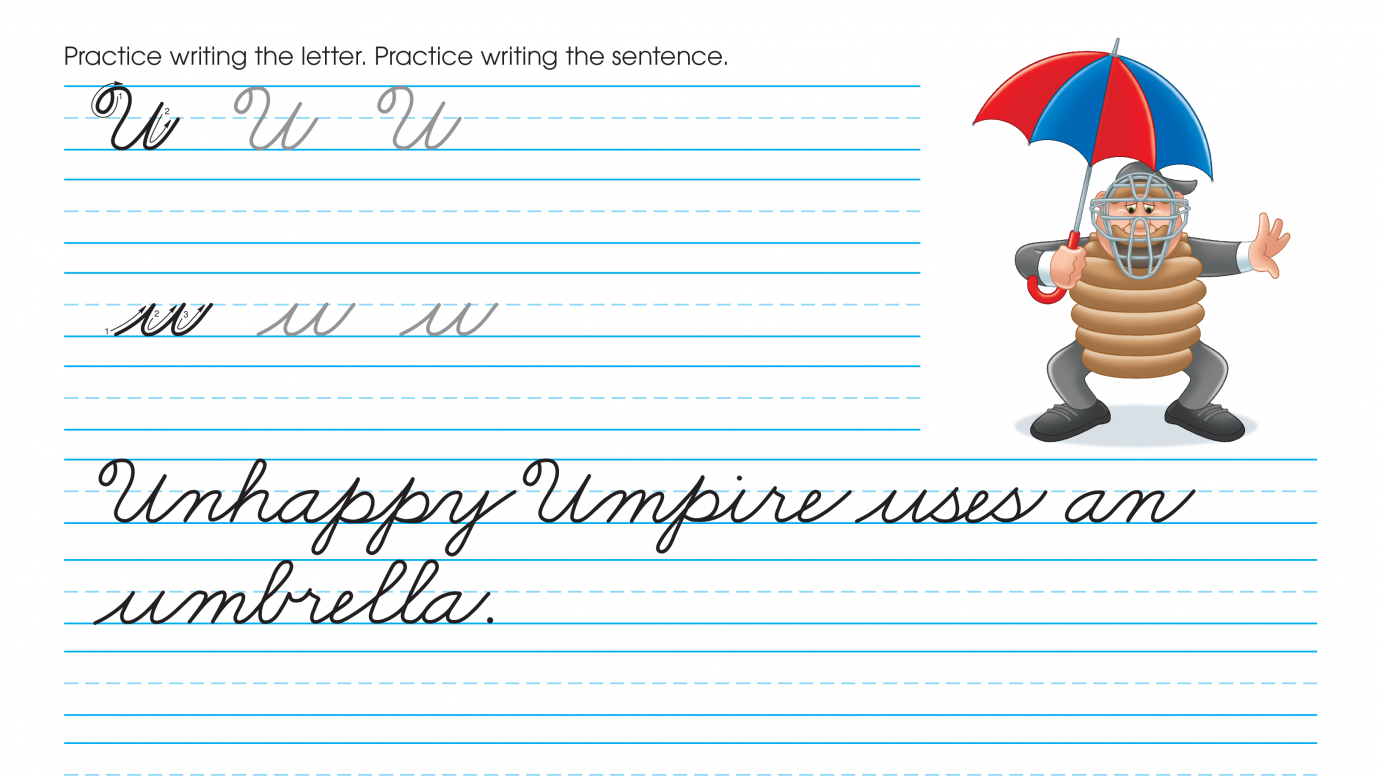 Practice writing the letter. Practice writing the sentence.
U U U
u u u
Unhappy Umpire uses an
umbrella.